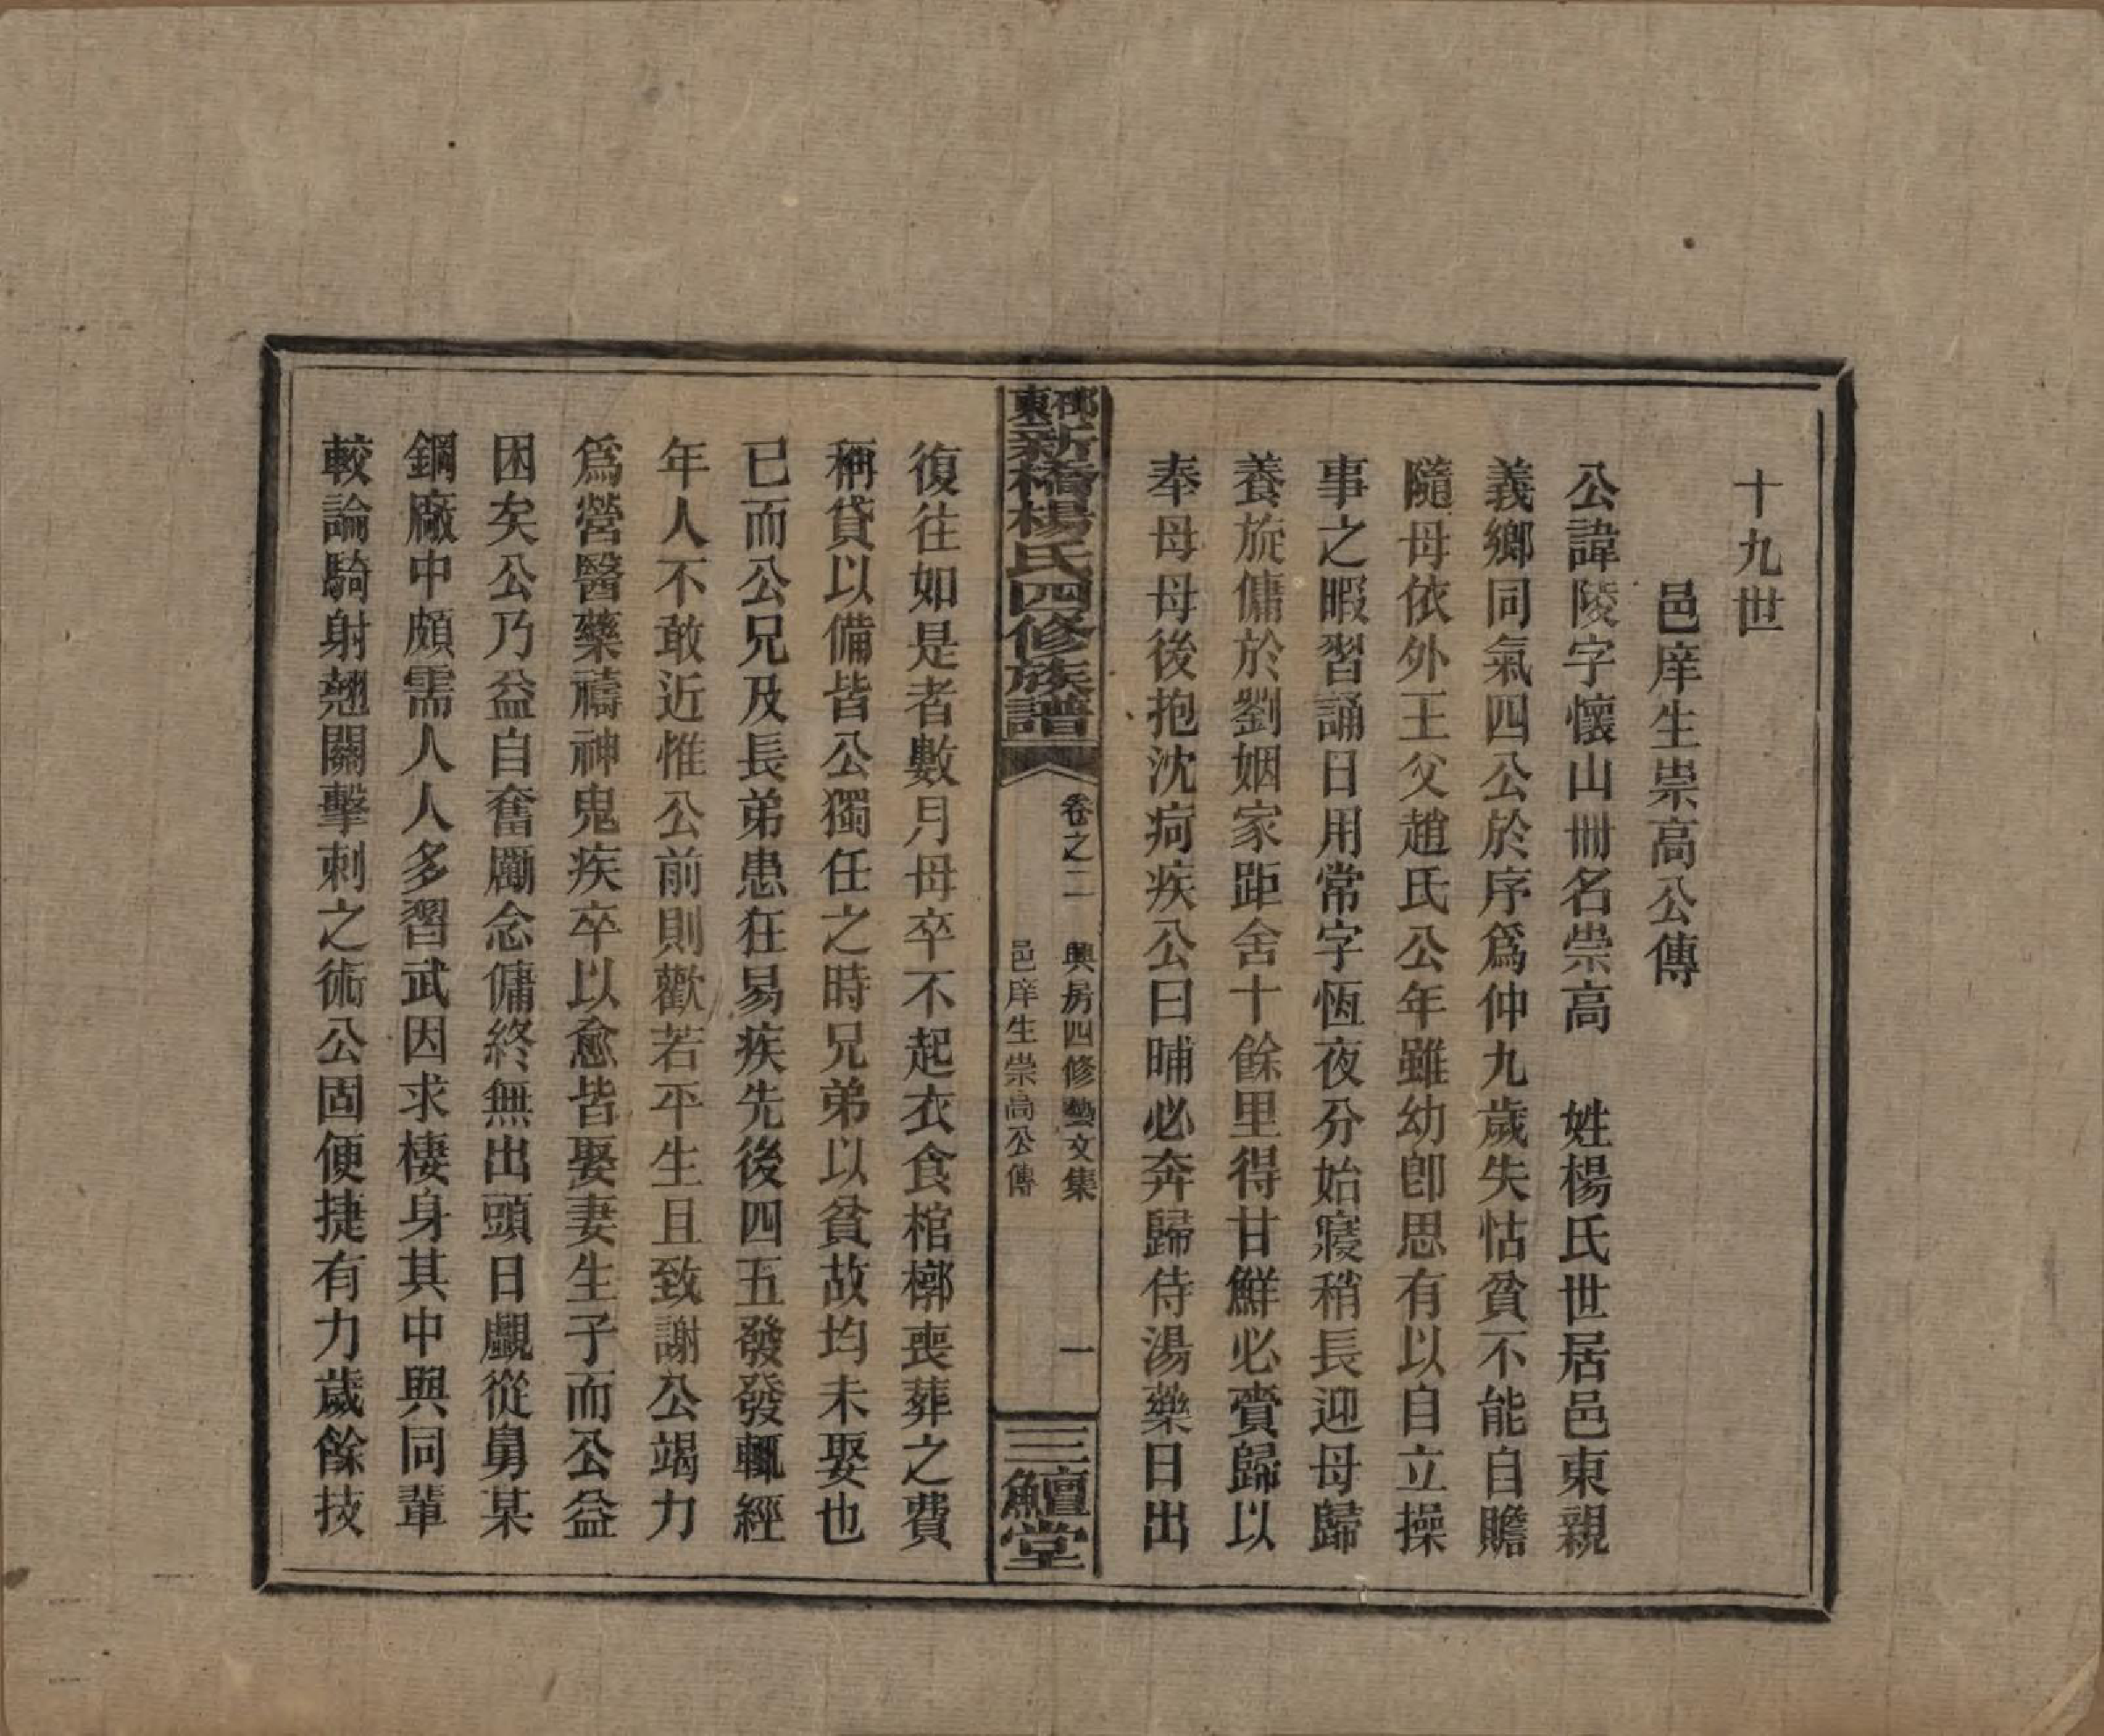 十九世
邑庠生崇高公傳
公諱陵字懷山冊名崇高　姓楊氏世居邑東親
義鄉同氣四公於序爲仲九歲失怙貧不能自贍
隨母依外王父趙氏公年雖幼卽思有以自立操
事之暇習誦日用常字恆夜分始寢稍長迎母歸
養旋傭於劉姻家距舍十餘里得甘鮮必賫歸以
奉母母後抱沈疴疾公日晡必奔歸侍湯藥日出
東新橋楊氏四修族譜
卷之二　興房四修藝文集
邑庠生崇高公傳
一
三鱣堂
復往如是者數月母卒不起衣食棺槨喪葬之費
稱貸以備皆公獨任之時兄弟以貧故均未娶也
已而公兄及長弟患狂易疾先後四五發發輒經
年人不敢近惟公前則歡若平生且致謝公竭力
爲營醫藥禱神鬼疾卒以愈皆娶妻生子而公益
困矣公乃益自奮勵念傭終無出頭日覷從舅某
鋼廠中頗需人人多習武因求棲身其中與同輩
較論騎射翹關擊刺之術公固便捷有力歲餘技